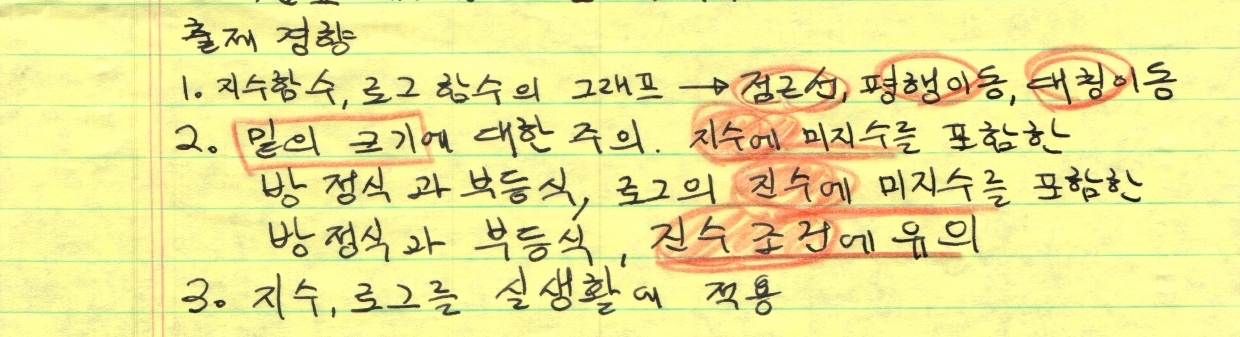 출제 경향
1. 지수함수, 로그 함수의 그래프 → 점근선, 평행이동, 대칭이동
2. 밑의 크기에 대한 주의. 지수에 미지수를 포함한
방정식과 부등식, 로그의 진수에 미지수를 포함한
방정식과 부등식, 진수 조건에 유의
3. 지수, 로그를 실생활에 적용